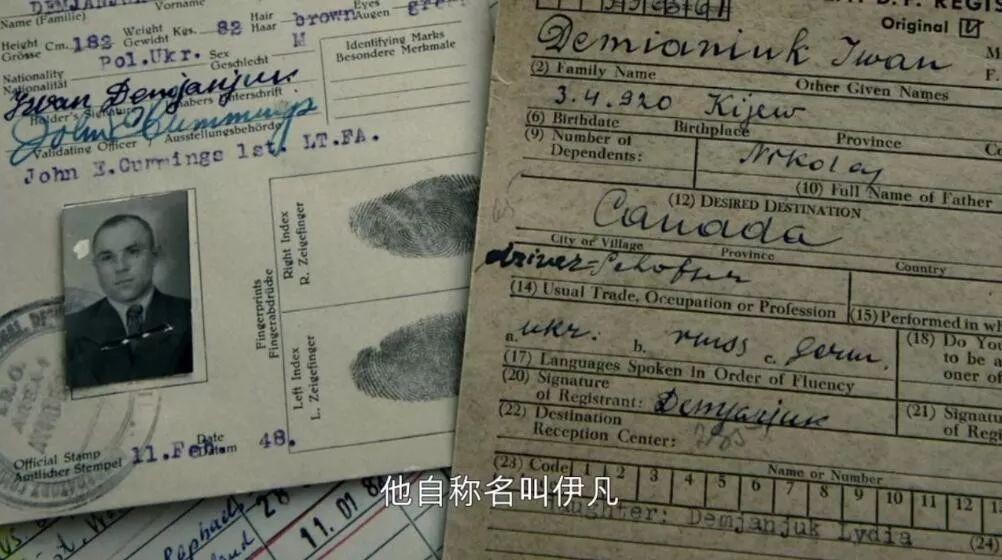 DEMJANJUK
Name (Familie) Vorname
Height Weight Kgs. 82 Hair brown Eyes
Grösse Cm. 182 Gewicht Haar Augen
Pol.Ukr. Sex M
Nationality Geschlecht
Nationalität
Iwan Demjanjuk
Holder's Signature Inhabers Unterschrift
John E Cummings
Validating Officer Ausstellungsbehörde
John E.Cummings 1st. LT.FA.
Identifying Marks
Besondere Merkmale
Fingerprints
Fingerabdrücke
Right Index
R. Zeigefinger
Left Index
L. Zeigefinger
11.Feb. 48.
Date
Datum
Official Stamp
Amtlicher Stempel
Original
Demianiuk Iwan
(2) Family Name Other Given Names
3.4.920 Kijew
(6) Birthdate Birthplace Province
(9) Number of
Dependents:
Nikolay
(10) Full Name of Father
(12) DESIRED DESTINATION
Canada
City or Village Province Country
driver
(14) Usual Trade, Occupation or Profession (15) Performed in
a. ukr. b. russ c. germ.
(17) Languages Spoken in Order of Fluency
(18) Do You
to be a
oner of
(20) Signature
of Registrant: Demjanjuk
(21)
(22) Destination
Reception Center:
(23) Code 1 2 3 4 5 6 7 8 9 10 11 12 13
Name or Number
Daughter: Demjanjuk Lydia
(24)
28
11.01
他自称名叫伊凡